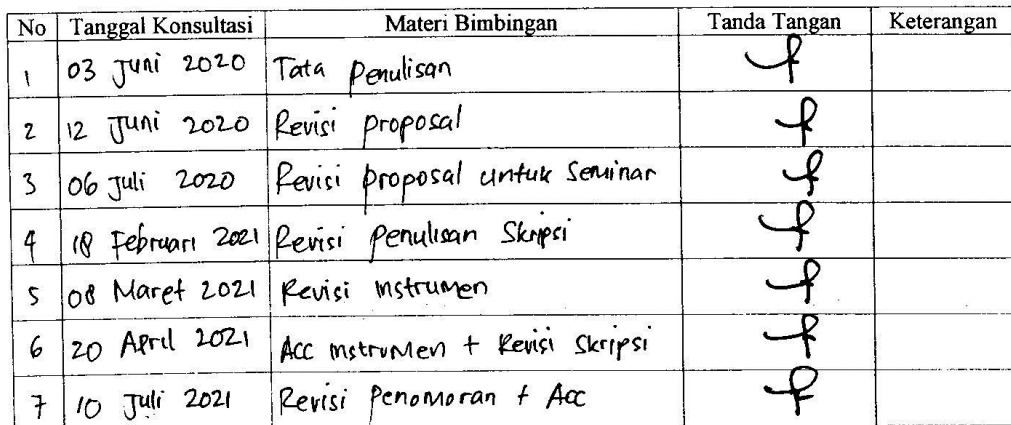 No Tanggal Konsultasi Materi Bimbingan Tanda Tangan Keterangan
1 03 Juni 2020 Tata Penulisan
2 12 Juni 2020 Revisi proposal
3 06 Juli 2020 Revisi proposal untuk Seminar
4 18 Februari 2021 Revisi Penulisan Skripsi
5 08 Maret 2021 Revisi instrumen
6 20 April 2021 Acc instrumen + Revisi Skripsi
7 10 Juli 2021 Revisi Penomoran + Acc